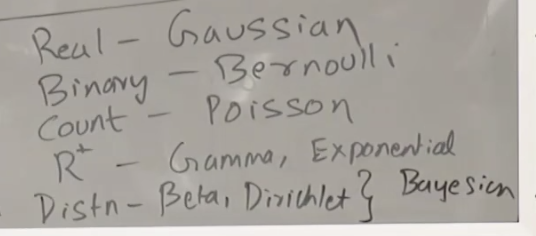 Real - Gaussian
Binary - Bernoulli
Count - Poisson
R⁺ - Gamma, Exponential
Distn - Beta, Dirichlet } Bayesian